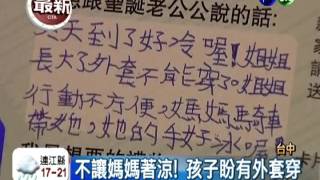 最新
CTS
想跟聖誕老公公說的話:
冬天到了好冷喔!姐姐
長大了外套不能穿了。姐姐
行動不方便,媽媽騎車
帶她,她的手好冰喔!
台中
連江縣
17-21
不讓媽媽著涼! 孩子盼有外套穿